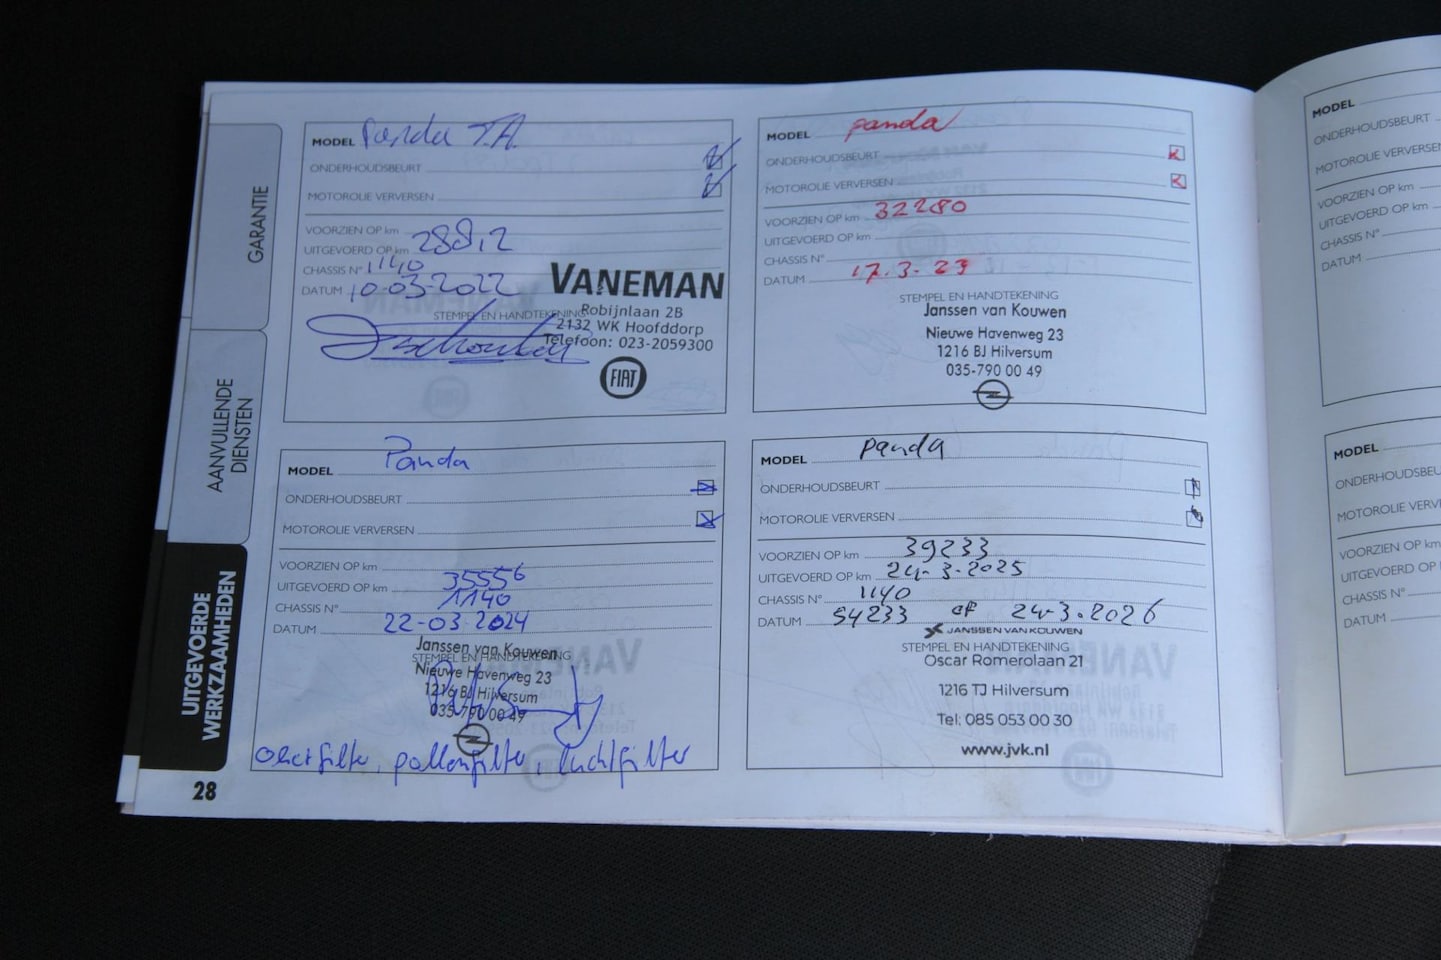 GARANTIE
AANVULLENDE
DIENSTEN
UITGEVOERDE
WERKZAAMHEDEN
28
MODEL Panda T.A.
ONDERHOUDSBEURT
MOTOROLIE VERVERSEN
VOORZIEN OP km
UITGEVOERD OP km 28812
CHASSIS N° 1140
DATUM 10-03-2022
VANEMAN
STEMPEL EN HANDTEKENING
Robijnlaan 2B
2132 WK Hoofddorp
Telefoon: 023-2059300
FIAT
MODEL panda
ONDERHOUDSBEURT
MOTOROLIE VERVERSEN
VOORZIEN OP km 32280
UITGEVOERD OP km
CHASSIS N°
DATUM 17.3-23
STEMPEL EN HANDTEKENING
Janssen van Kouwen
Nieuwe Havenweg 23
1216 BJ Hilversum
035-790 00 49
MODEL Panda
ONDERHOUDSBEURT
MOTOROLIE VERVERSEN
VOORZIEN OP km
UITGEVOERD OP km 35556
CHASSIS N° 1140
DATUM 22-03-2024
Janssen van Kouwen
STEMPEL EN HANDTEKENING
Nieuwe Havenweg 23
1216 BJ Hilversum
035-790 00 49
pollenfilter, luchtfilter
MODEL panda
ONDERHOUDSBEURT
MOTOROLIE VERVERSEN
VOORZIEN OP km 39233
UITGEVOERD OP km 24-3-2025
CHASSIS N° 1140
DATUM 54233 of 24-3-2026
JANSSEN VAN KOUWEN
STEMPEL EN HANDTEKENING
Oscar Romerolaan 21
1216 TJ Hilversum
Tel: 085 053 00 30
www.jvk.nl
MODEL
ONDERHOUDSBEURT
MOTOROLIE VERVERSEN
VOORZIEN OP km
UITGEVOERD OP km
CHASSIS N°
DATUM
MODEL
ONDERHOUDSBEU
MOTOROLIE VERV
VOORZIEN OP km
UITGEVOERD OP k
CHASSIS N°
DATUM